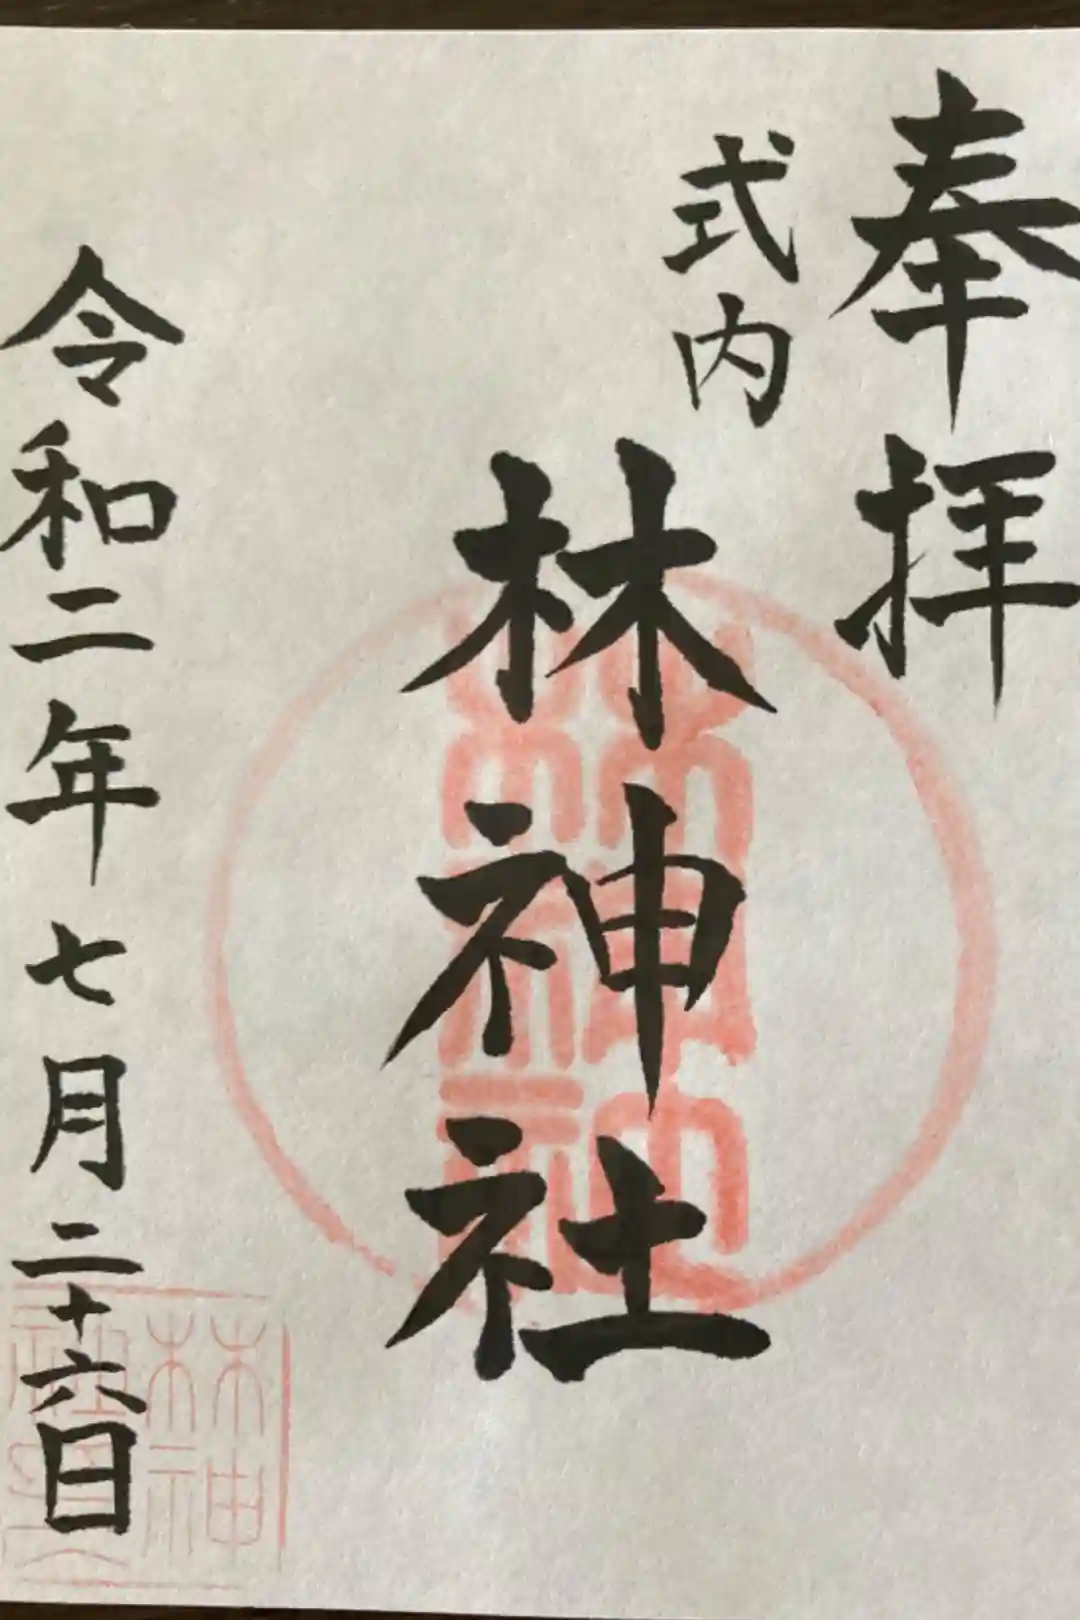 奉拝
式内
林神社
令和二年七月二十六日
林神